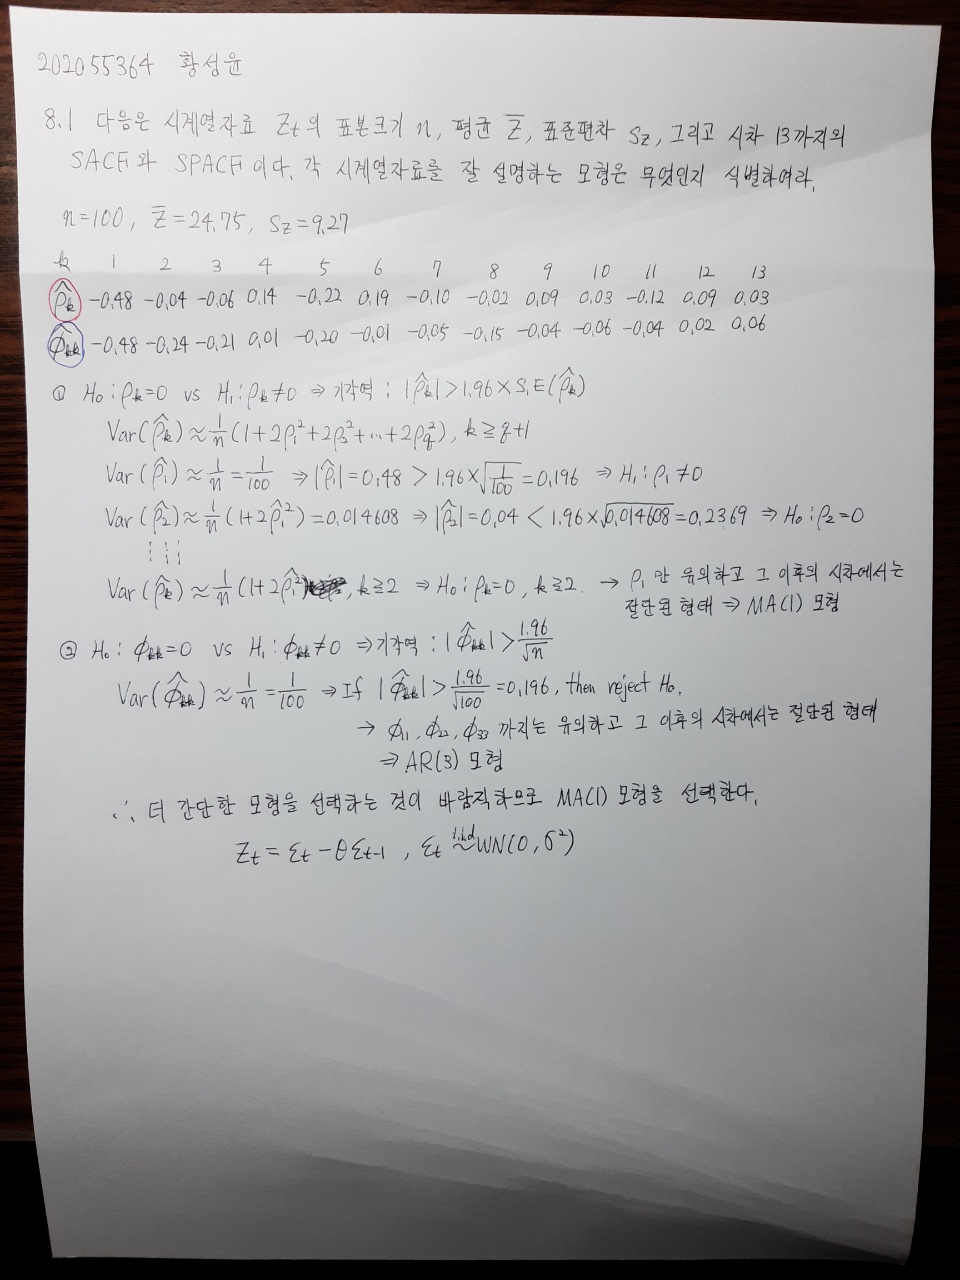 202055364 황성윤
8.1 다음은 시계열자료 Zt의 표본크기 n, 평균 Z̅, 표준편차 Sz, 그리고 시차 13까지의
SACF와 SPACF이다. 각 시계열자료를 잘 설명하는 모형은 무엇인지 식별하여라.
n=100, Z̅=24.75, Sz=9.27
k 1 2 3 4 5 6 7 8 9 10 11 12 13
ρ̂k -0.48 -0.04 -0.06 0.14 -0.22 0.19 -0.10 -0.02 0.09 0.03 -0.12 0.09 0.03
φ̂kk -0.48 -0.24 -0.21 0.01 -0.20 -0.01 -0.05 -0.15 -0.04 -0.06 -0.04 0.02 0.06
① H₀: ρk=0 vs H₁: ρk≠0 ⇒ 기각역 : |ρ̂k| > 1.96 × S.E(ρ̂k)
Var(ρ̂k) ≈ 1/n (1+2ρ₁²+2ρ₂²+…+2ρq²), k ≥ q+1
Var(ρ̂₁) ≈ 1/n = 1/100 ⇒ |ρ̂₁| = 0.48 > 1.96×√(1/100) = 0.196 ⇒ H₁: ρ₁≠0
Var(ρ̂₂) ≈ 1/n (1+2ρ̂₁²) = 0.014608 ⇒ |ρ̂₂| = 0.04 < 1.96×√0.014608 = 0.2369 ⇒ H₀: ρ₂=0
⋮ ⋮ ⋮
Var(ρ̂k) ≈ 1/n (1+2ρ̂₁²), k≥2 ⇒ H₀: ρk=0, k≥2. → ρ₁만 유의하고 그 이후의 시차에서는
절단된 형태 ⇒ MA(1) 모형
② H₀: φkk=0 vs H₁: φkk≠0 ⇒ 기각역 : |φ̂kk| > 1.96/√n
Var(φ̂kk) ≈ 1/n = 1/100 ⇒ If |φ̂kk| > 1.96/√100 = 0.196, then reject H₀.
→ φ₁₁, φ₂₂, φ₃₃ 까지는 유의하고 그 이후의 시차에서는 절단된 형태
⇒ AR(3) 모형
∴ 더 간단한 모형을 선택하는 것이 바람직하므로 MA(1) 모형을 선택한다.
Zt = εt - θεt-1, εt i.i.d ~ WN(0, σ²)